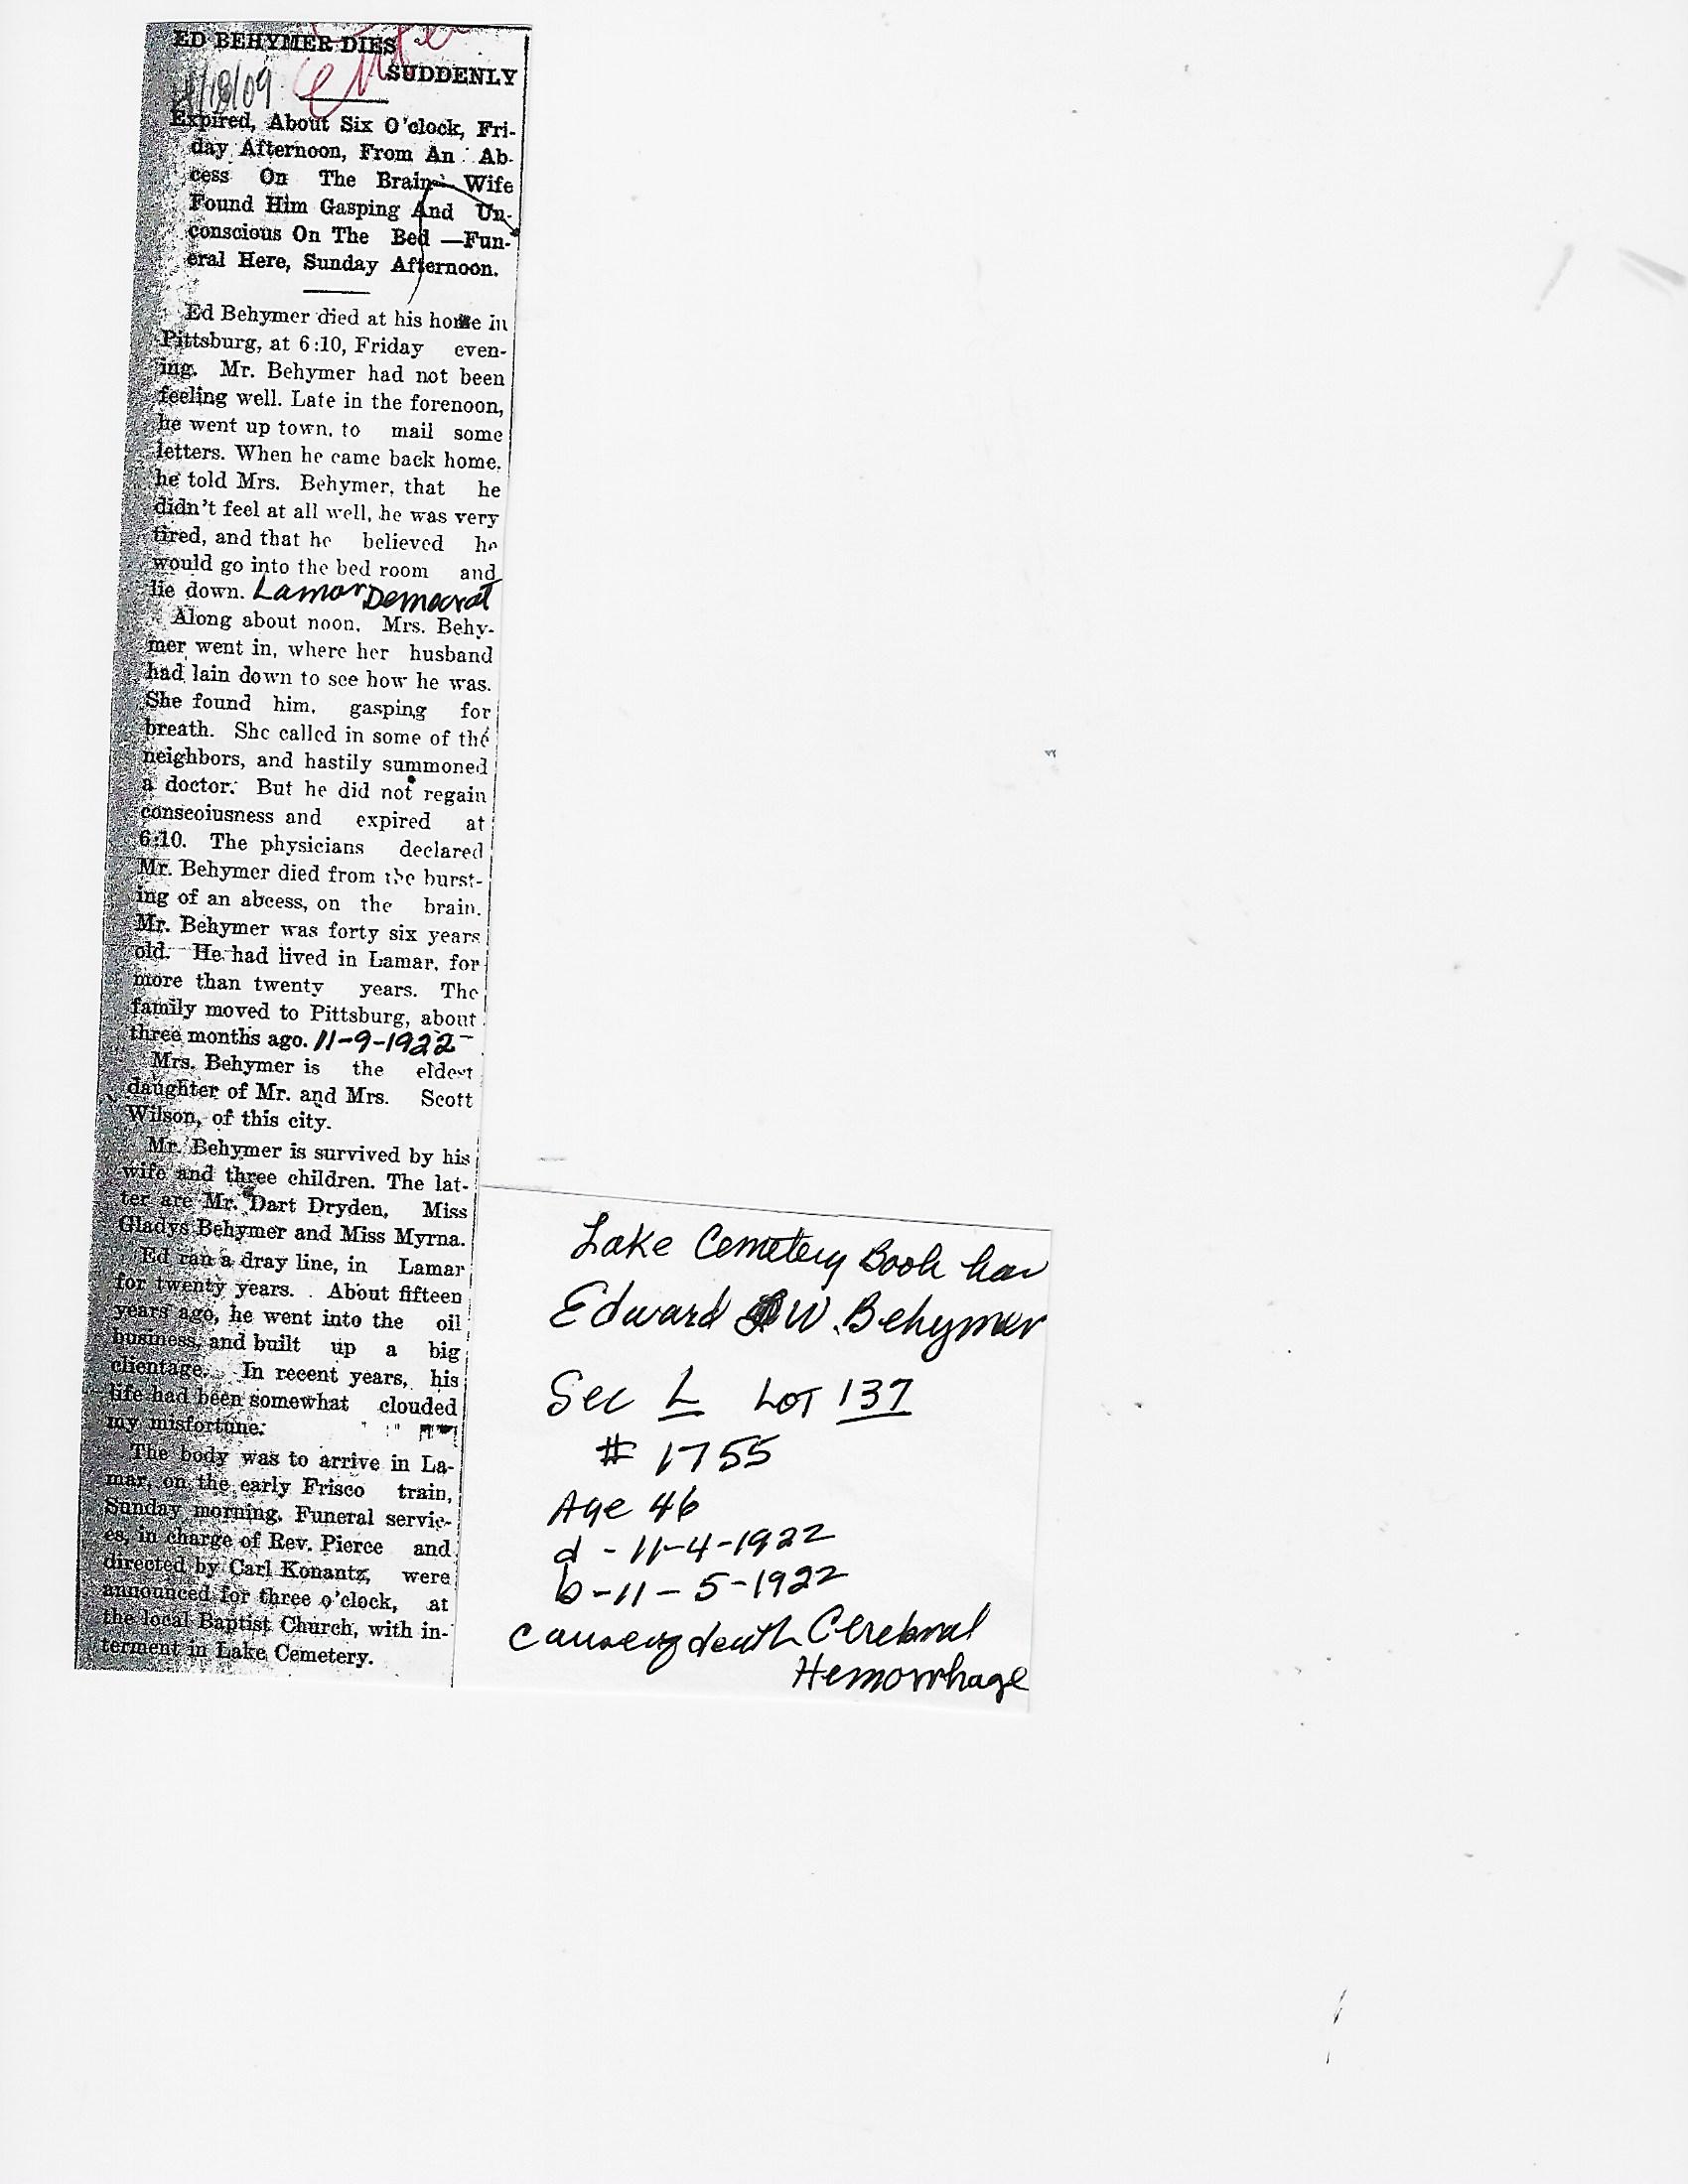 ED BEHYMER DIES
SUDDENLY
Expired, About Six O'clock, Fri-
day Afternoon, From An Ab-
cess On The Brain—Wife
Found Him Gasping And Un-
conscious On The Bed —Fun-
eral Here, Sunday Afternoon.
Ed Behymer died at his home in
Pittsburg, at 6:10, Friday even-
ing. Mr. Behymer had not been
feeling well. Late in the forenoon,
he went up town, to mail some
letters. When he came back home,
he told Mrs. Behymer, that he
didn't feel at all well, he was very
tired, and that he believed he
would go into the bed room and
lie down. Lamar Democrat
Along about noon, Mrs. Behy-
mer went in, where her husband
had lain down to see how he was.
She found him, gasping for
breath. She called in some of the
neighbors, and hastily summoned
a doctor. But he did not regain
conseoiusness and expired at
6:10. The physicians declared
Mr. Behymer died from the burst-
ing of an abcess, on the brain.
Mr. Behymer was forty six years
old. He had lived in Lamar, for
more than twenty years. The
family moved to Pittsburg, about
three months ago. 11-9-1922
Mrs. Behymer is the eldest
daughter of Mr. and Mrs. Scott
Wilson, of this city.
Mr. Behymer is survived by his
wife and three children. The lat-
ter are Mr. Dart Dryden, Miss
Gladys Behymer and Miss Myrna.
Ed ran a dray line, in Lamar
for twenty years. About fifteen
years ago, he went into the oil
business, and built up a big
clientage. In recent years, his
life had been somewhat clouded
my misfortune.
The body was to arrive in La-
mar, on the early Frisco train,
Sunday morning. Funeral servic-
es, in charge of Rev. Pierce and
directed by Carl Konantz, were
announced for three o'clock, at
the local Baptist Church, with in-
terment in Lake Cemetery.
Lake Cemetery Book has
Edward W. Behymer
Sec L LOT 137
# 1755
Age 46
d - 11-4-1922
b - 11 - 5-1922
cause of death Cerebral
Hemorrhage